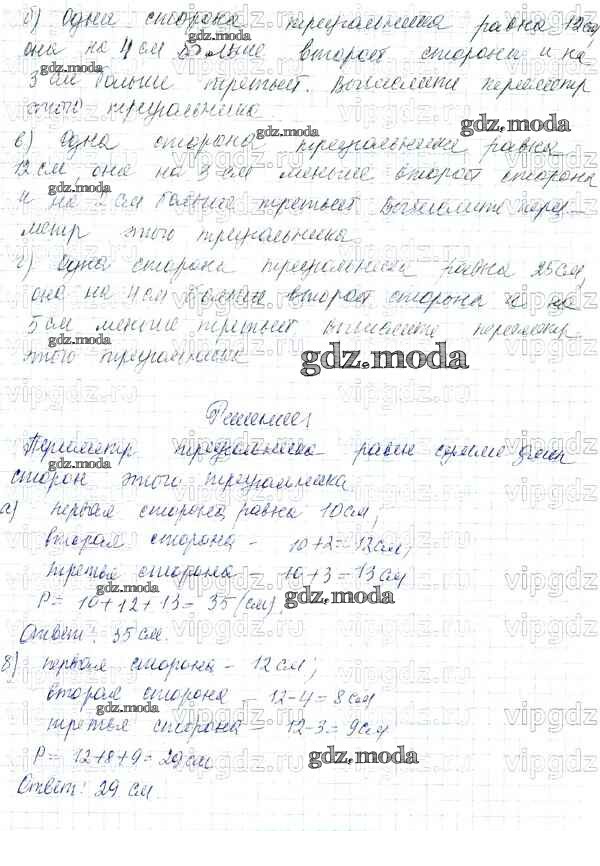 б) Одна сторона треугольника равна 12см,
она на 4 см больше второй стороны и на
3 см больше третьей. Вычислите периметр
этого треугольника
в) Одна сторона треугольника равна
12 см, она на 3 см меньше второй стороны
и на 2 см больше третьей Вычислите пери-
метр этого треугольника
г) Одна сторона треугольника равна 25см,
она на 4 см больше второй стороны и на
5 см меньше третьей Вычислите периметр
этого треугольника
gdz.moda
Решение
Периметр треугольника равен сумме длин
сторон этого треугольника
а) первая сторона равна 10см;
вторая сторона - 10+2=12см;
третья сторона - 10+3=13см
P = 10+12+13=35(см)
Ответ: 35 см.
б) первая сторона - 12см;
вторая сторона - 12-4=8см
третья сторона - 12-3=9см
P = 12+8+9=29см
Ответ: 29 см